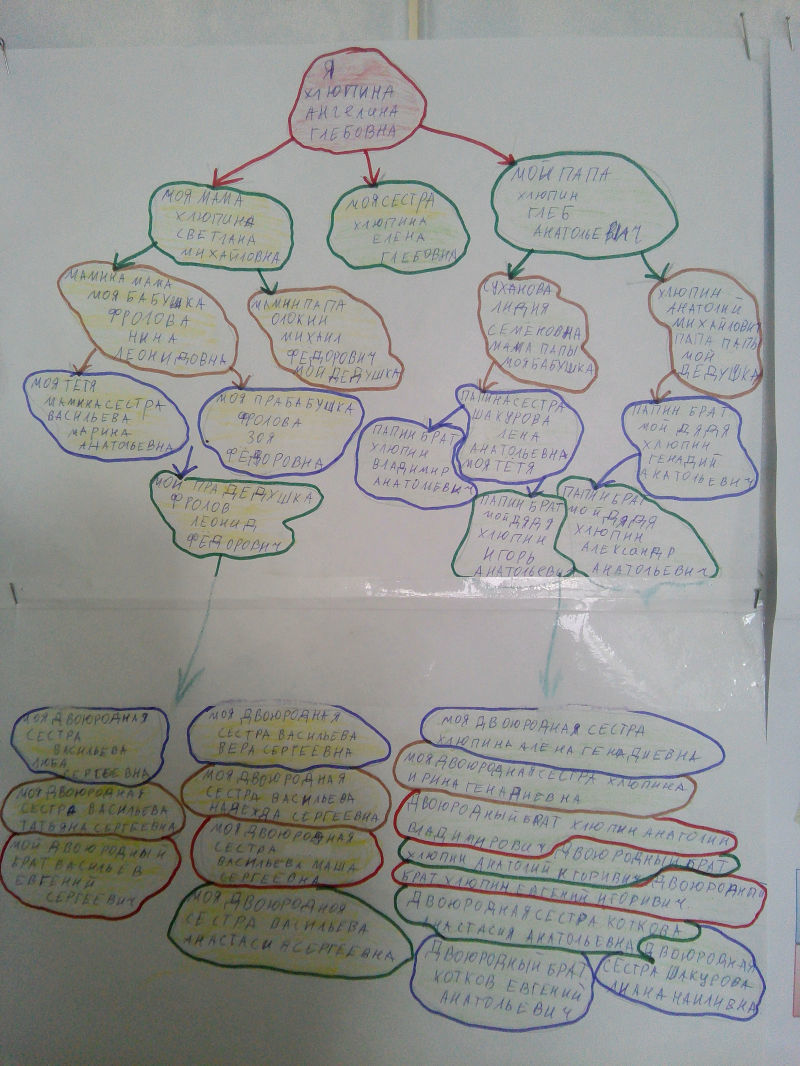 Я
ХЛЮПИНА
АНГЕЛИНА
ГЛЕБОВНА
МОЯ МАМА
ХЛЮПИНА
СВЕТЛАНА
МИХАЙЛОВНА
МОЯ СЕСТРА
ХЛЮПИНА
ЕЛЕНА
ГЛЕБОВНА
МОЙ ПАПА
ХЛЮПИН
ГЛЕБ
АНАТОЛЬЕВИЧ
МАМИНА МАМА
МОЯ БАБУШКА
ФРОЛОВА
НИНА
ЛЕОНИДОВНА
МАМИН ПАПА
ОЛОКИН
МИХАИЛ
ФЕДОРОВИЧ
МОЙ ДЕДУШКА
СУХАНОВА
ЛИДИЯ
СЕМЕНОВНА
МАМА ПАПЫ
МОЯ БАБУШКА
ХЛЮПИН
АНАТОЛИЙ
МИХАЙЛОВИЧ
ПАПА ПАПЫ
МОЙ
ДЕДУШКА
МОЯ ТЕТЯ
МАМИНА СЕСТРА
ВАСИЛЬЕВА
МАРИНА
АНАТОЛЬЕВНА
МОЯ ПРАБАБУШКА
ФРОЛОВА
ЗОЯ
ФЕДОРОВНА
ПАПИН БРАТ
ХЛЮПИН
ВЛАДИМИР
АНАТОЛИЕВИЧ
ПАПИНА СЕСТРА
ШАКУРОВА
ЛЕНА
АНАТОЛЬЕВНА
МОЯ ТЕТЯ
ПАПИН БРАТ
МОЙ ДЯДЯ
ХЛЮПИН
ГЕНАДИЙ
АНАТОЛЬЕВИЧ
МОЙ ПРАДЕДУШКА
ФРОЛОВ
ЛЕОНИД
ФЁДОРОВИЧ
ПАПИН БРАТ
МОЙ ДЯДЯ
ХЛЮПИН
ИГОРЬ
АНАТОЛЬЕВИЧ
ПАПИН БРАТ
МОЙ ДЯДЯ
ХЛЮПИН
АЛЕКСАНДР
АНАТОЛЬЕВИЧ
МОЯ ДВОЮРОДНАЯ
СЕСТРА
ВАСИЛЬЕВА
ЛЮБА
СЕРГЕЕВНА
МОЯ ДВОЮРОДНАЯ
СЕСТРА ВАСИЛЬЕВА
ТАТЬЯНА СЕРГЕЕВНА
МОЙ ДВОЮРОДНЫЙ
БРАТ ВАСИЛЬЕВ
ЕВГЕНИЙ
СЕРГЕЕВИЧ
МОЯ ДВОЮРОДНАЯ
СЕСТРА ВАСИЛЬЕВА
ВЕРА СЕРГЕЕВНА
МОЯ ДВОЮРОДНАЯ
СЕСТРА ВАСИЛЬЕВА
НАДЕЖДА СЕРГЕЕВНА
МОЯ ДВОЮРОДНАЯ
СЕСТРА
ВАСИЛЬЕВА МАША
СЕРГЕЕВНА
МОЯ ДВОЮРОДНОЯ
СЕСТРА ВАСИЛЬЕВА
АНАСТАСИЯ СЕРГЕЕВНА
МОЯ ДВОЮРОДНАЯ СЕСТРА
ХЛЮПИНА АЛЕНА ГЕНАДИЕВНА
МОЯ ДВОЮРОДНАЯ СЕСТРА ХЛЮПИНА
ИРИНА ГЕНАДИЕВНА
ДВОЮРОДНЫЙ БРАТ ХЛЮПИН АНАТОЛИЙ
ВЛАДИМИРОВИЧ
ДВОЮРОДНЫЙ БРАТ
ХЛЮПИН АНАТОЛИЙ ИГОРИВИЧ
ДВОЮРОДНЫЙ
БРАТ ХЛЮПИН ЕВГЕНИЙ ИГОРИВИЧ.
ДВОЮРОДНАЯ СЕСТРА КОТКОВА
АНАСТАСИЯ АНАТОЛЬЕВНА
ДВОЮРОДНЫЙ БРАТ
КОТКОВ ЕВГЕНИЙ
АНАТОЛЬЕВИЧ
ДВОЮРОДНАЯ
СЕСТРА ШАКУРОВА
ЛИАНА НАИЛИВНА